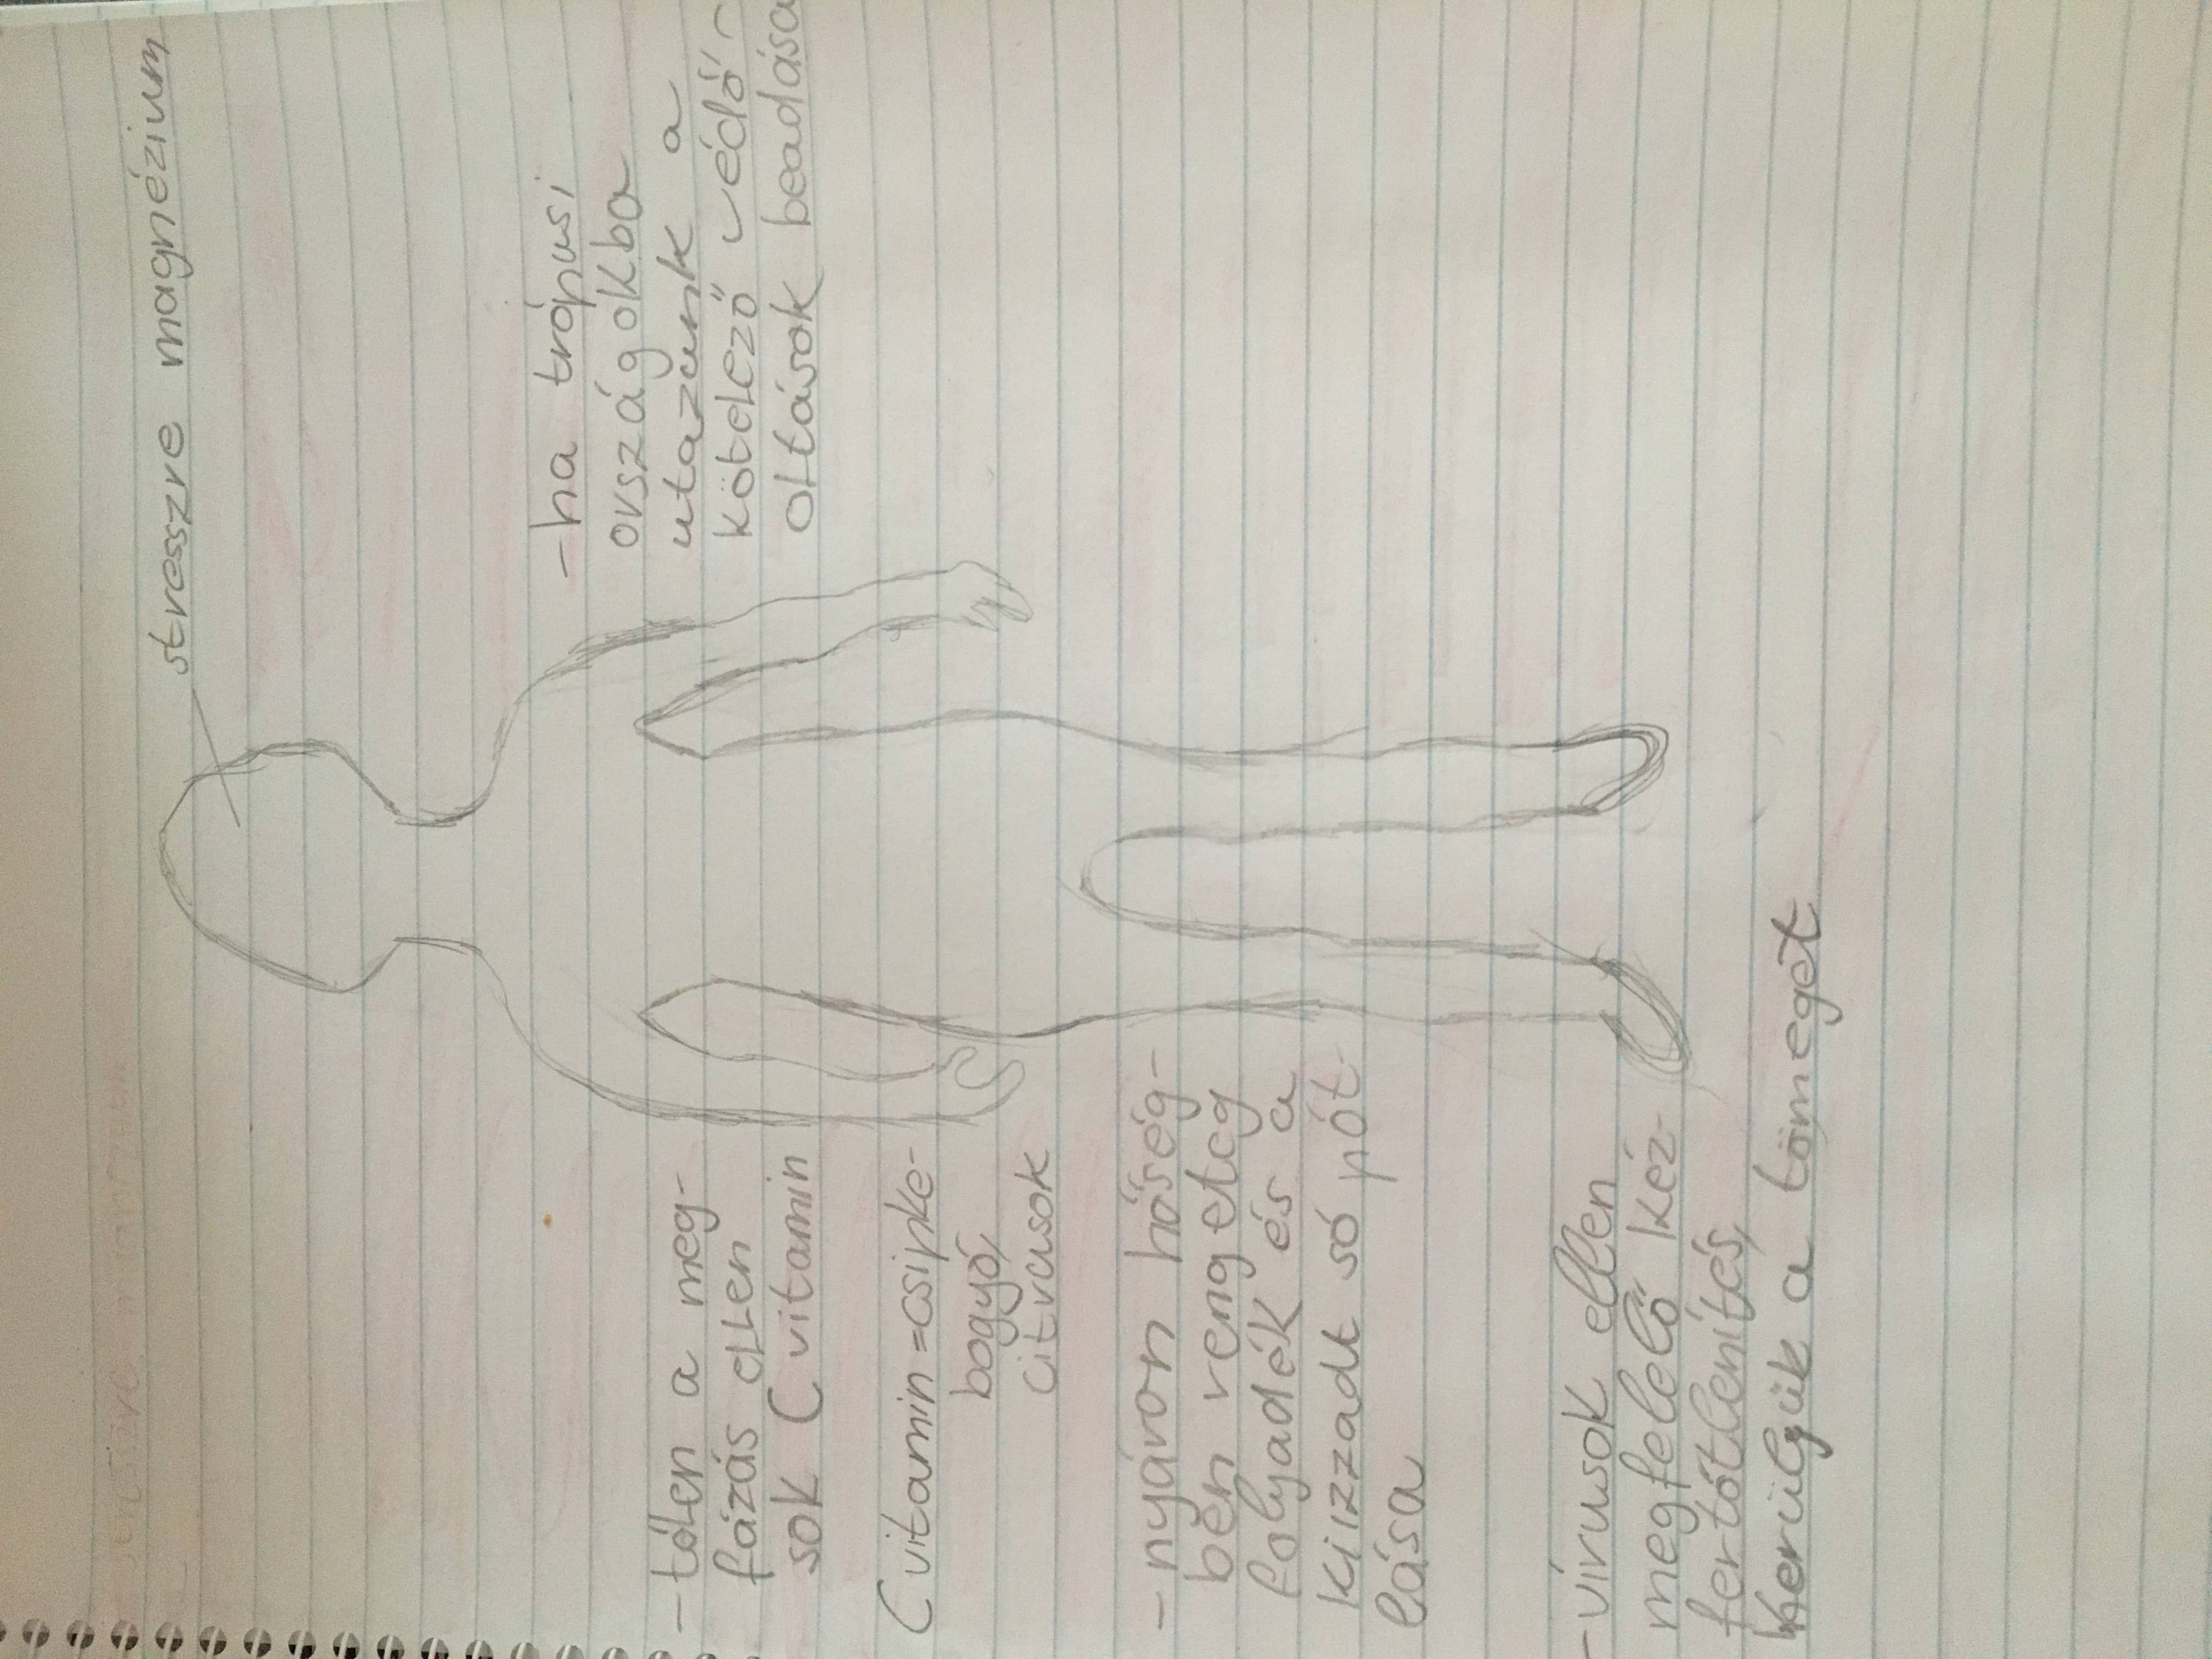 stresszre magnézium
-ha trópusi
országokba
utazunk a
kötelező védő-
oltások beadása
-télen a meg-
fázás ellen
sok C vitamin
C vitamin=csipke-
bogyó,
citrusok
-nyáron hőség-
ben rengeteg
folyadék és a
kiizzadt só pót-
lása
-vírusok ellen
megfelelő kéz-
fertőtlenítés,
kerüljük a tömeget